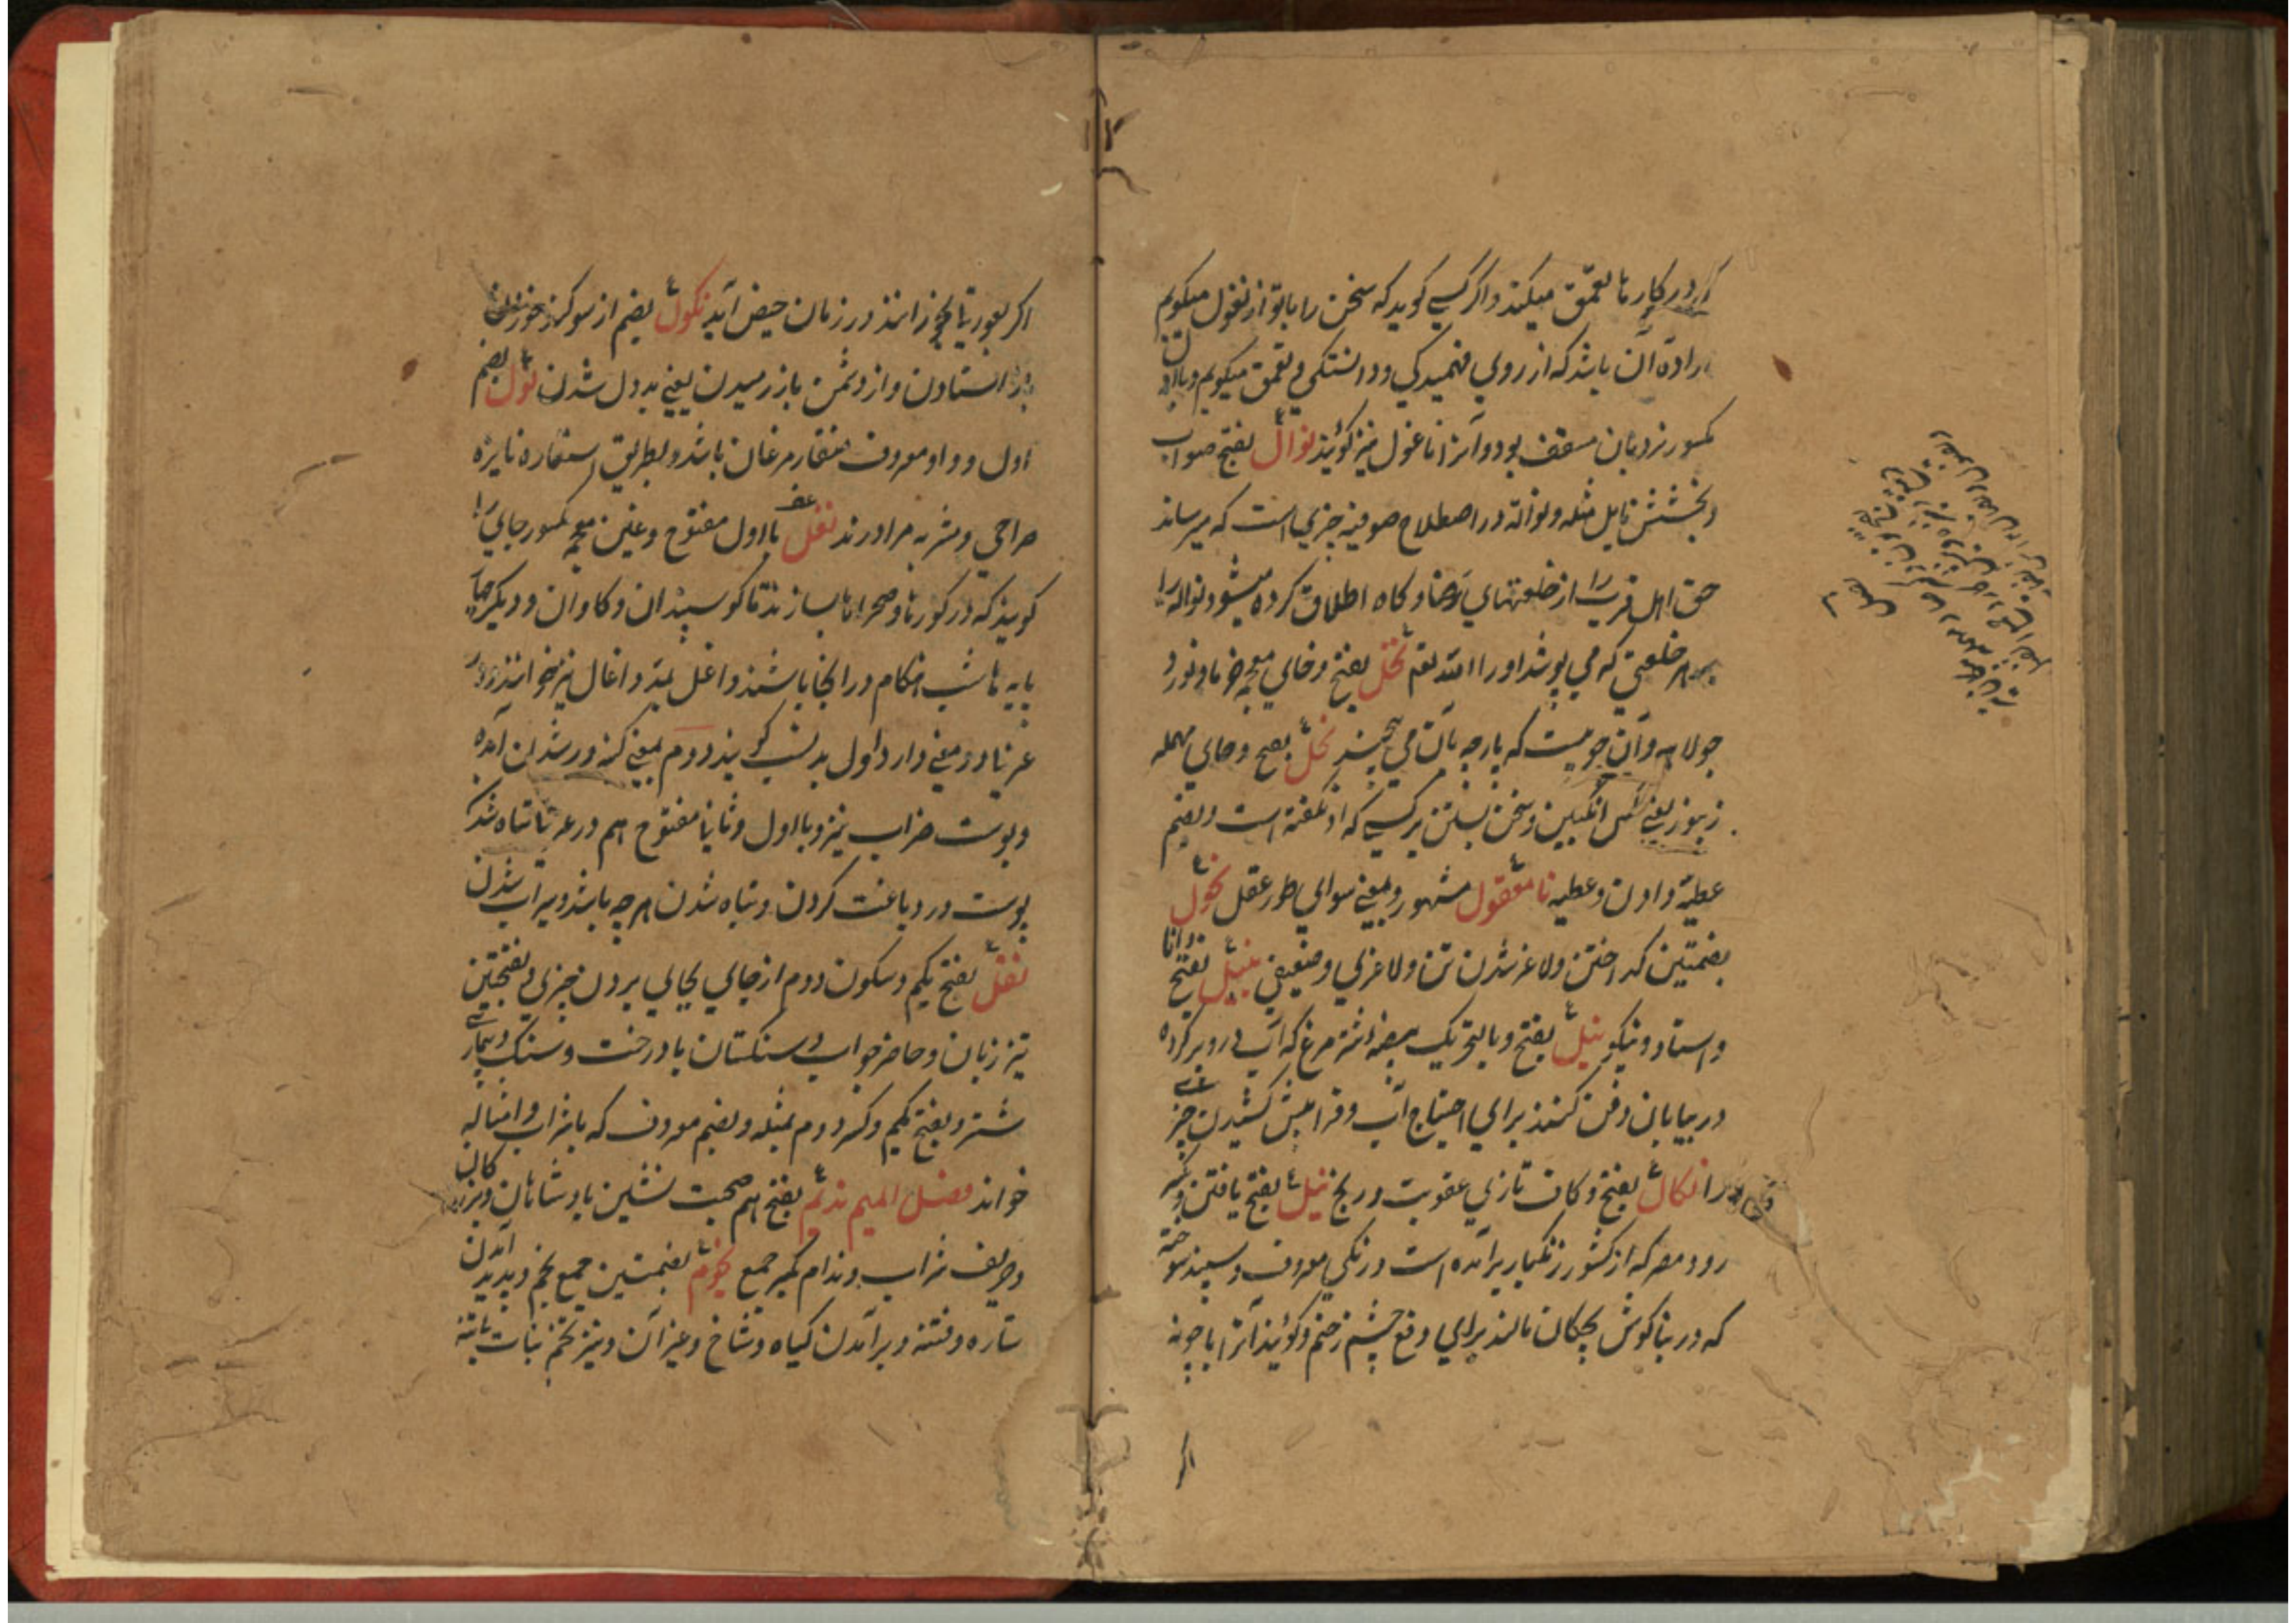 در کارها تعمق میکند و اگر کسی گوید که سخن را با تو از نغول میگویم
اراده آن باشد که از روی فهمیدگی و دانستگی و تعمق میگویم و با
کسور نردبان مسقف بود و آنرا ناغول نیز گویند نوال بفتح صواب
و بخشش نایل مثله و نواله در اصطلاح صوفیه چیزی است که میرساند
حق اهل قرب را از خلعتهای رضا و گاه اطلاق کرده میشود نواله را
بهر خلعتی که می پوشد او را الله تعم نخل بفتح و خای معجمه خرما و نورد
جولاهه و آن چوبیست که پارچه بآن می پیچند نحل بفتح و حای مهمله
زنبور یعنی مگس انگبین و سخن بستن بر کسی که او نگفته است و بضم
عطیه دادن و عطیه نامعقول مشهور و بمعنی سوای طور عقل نحول
بضمتین گداختن و لاغر شدن تن و لاغری و ضعیفی نبیل بفتح دانا
و استاد و نیکو نبل بفتح و بالتحریک بیضه شتر مرغ که آب در و پر کرده
در بیابان دفن کنند برای احتیاج آب و فرا پیش کشیدن چیزی
را نکال بفتح و کاف تازی عقوبت و رنج نیل بفتح یافتن و بکسر
رود مصر که از کشور زنگبار برآمده است و رنگی معروف و سپند سوخته
که در بناگوش بچگان مالند برای دفع چشم زخم و گویند آنرا با چونه
اگر
اگر بعورتها بخورانند در زمان حیض آید نکول بضم از سوگند خوردن
باز استادن و از دشمن باز رسیدن یعنی بد دل شدن نول بضم
اول و واو معروف منقار مرغان باشد و بطریق استعاره نایزه
صراحی و مشربه مراد دارند نغل با اول مفتوح و غین معجمه مکسور جای را
گویند که در کورها و صحراها بسازند تا گوسپندان و گاوان و دیگر چهار
پایه ها شب هنگام در آنجا باشند و اغل بمد و اغال نیز خوانند و در
عربی دو معنی دارد اول بد نسب گویند دوم بمعنی کنه ور شدن آمده
و پوست خراب نیز و با اول و ثانی مفتوح هم در عربی تباه شدن
پوست در دباغت کردن و تباه شدن هر چه باشد و بیراب شدن
نقل بفتح یکم و سکون دوم از جای بجای بردن چیزی و بفتحتین
تیز زبان و حاضر جواب و سنگستان با درخت و سنگ و بیماری
شتر و بفتح یکم و کسر دوم بمثله و بضم معروف که با شراب و امثاله
خوانند فصل المیم ندیم بفتح هم صحبت نشین پادشاهان و بزرگان
و حریف شراب و ندام بکسر جمع نجوم بضمتین جمع نجم و پدید آمدن
ستاره و فتنه و برآمدن گیاه و شاخ و غیر آن و نیز نجم نبات